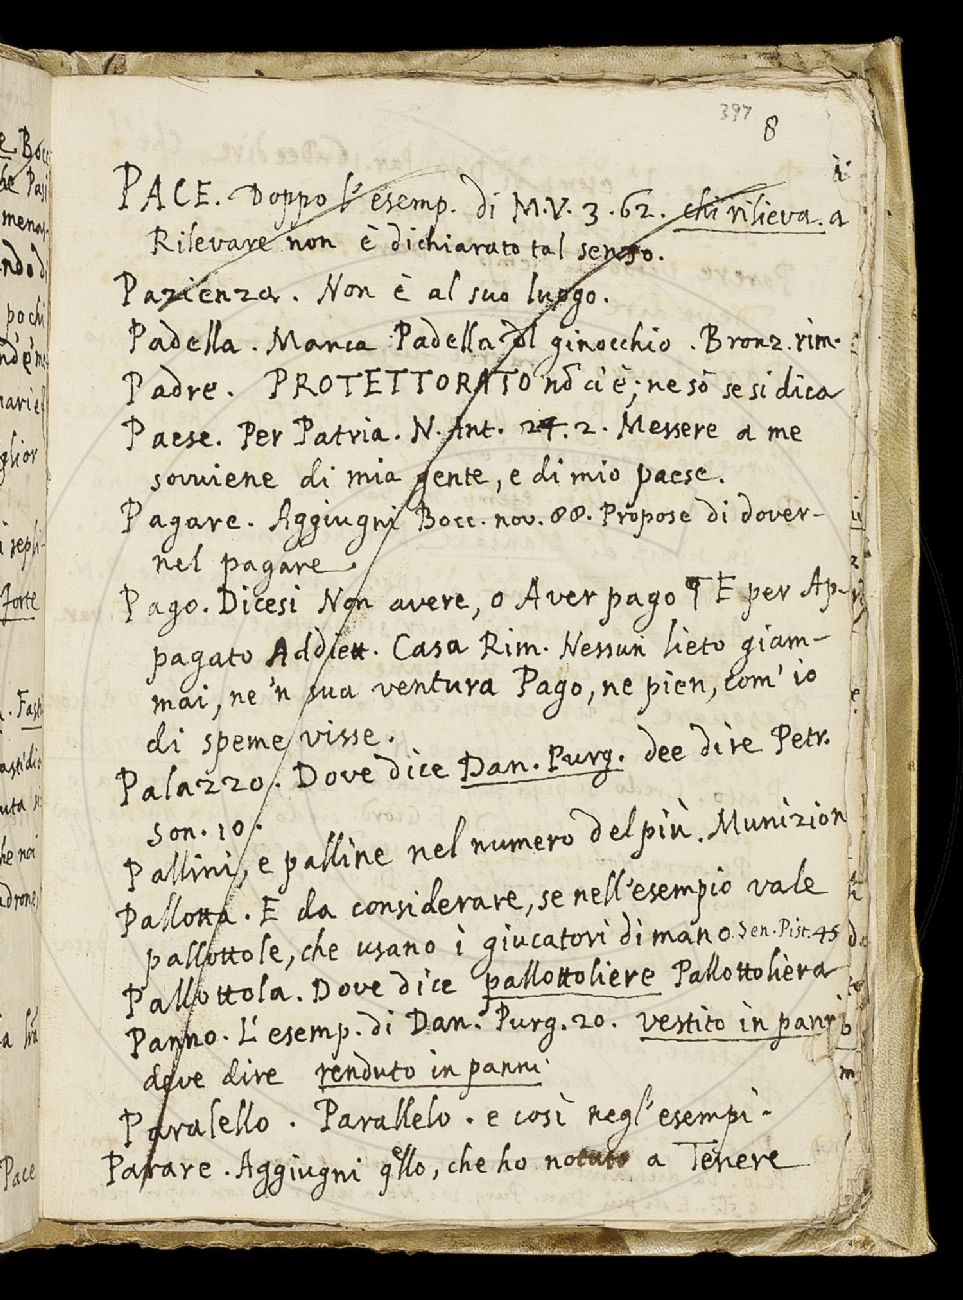 397
8
PACE. Doppo l'esemp. di M.V. 3.62. chi rilieva. a
Rilevare non è dichiarato tal senso.
Pazienza. Non è al suo luogo.
Padella. Manca Padella del ginocchio. Bronz. rim.
Padre. PROTETTORATO nō ci è; ne sō se si dica
Paese. Per Patria. N. Ant. 24.2. Messere a me
sovviene di mia gente, e di mio paese.
Pagare. Aggiugni Bocc. nov. 88. Propose di dover-
nel pagare.
Pago. Dicesi Non avere, o Aver pago TE per Ap-
pagato Addiett. Casa Rim. Nessun lieto giam-
mai, ne 'n sua ventura Pago, ne pien, com' io
di speme visse.
Palazzo. Dove dice Dan. Purg. dee dire Petr.
son. 10.
Pallini, e palline nel numero del più. Munizion
Pallotta. E da considerare, se nell'esempio vale
pallottole, che usano i giucatori di mano. Sen. Pist. 45
Pallottola. Dove dice pallottoliere Pallottoliera
Panno. L'esemp. di Dan. Purg. 20. vestito in panni
dove dire renduto in panni
Paralello. Parallelo. e così negl'esempi.
Parare. Aggiugni qllo, che ho notato a Tenere